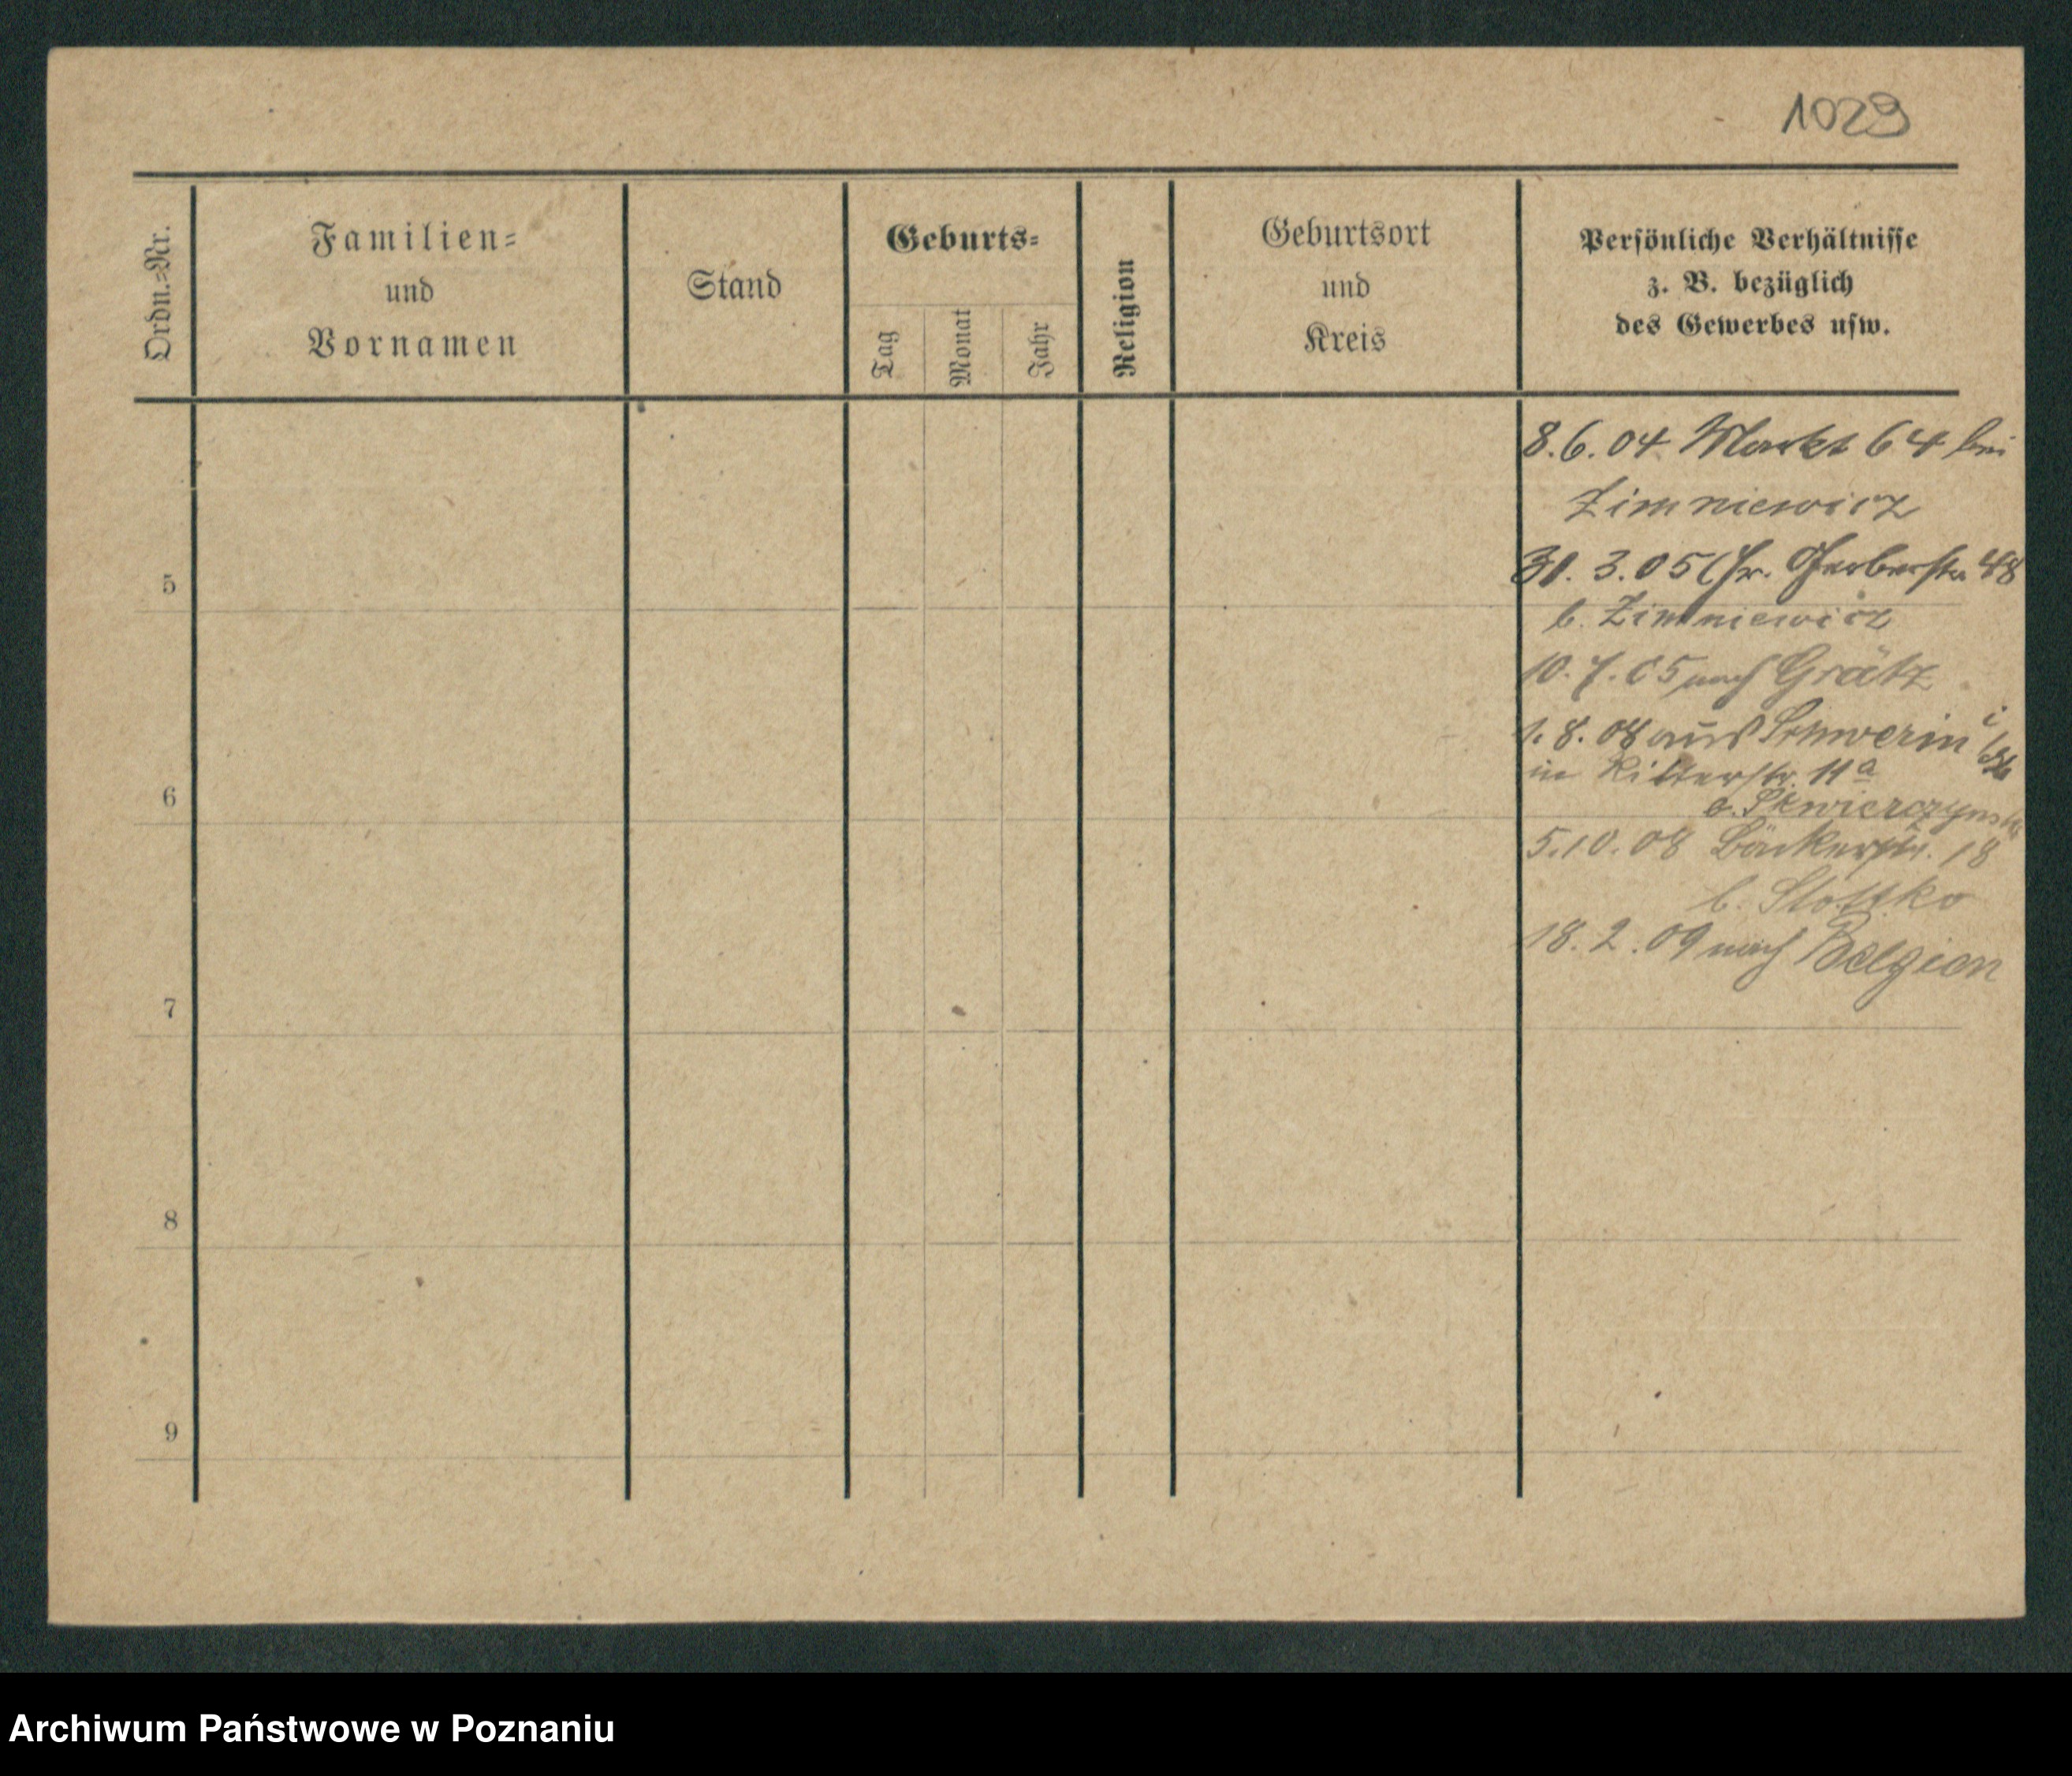 1029
Ordn.=Nr.
Familien=
und
Vornamen
Stand
Geburts=
Tag
Monat
Jahr
Religion
Geburtsort
und
Kreis
Persönliche Verhältnisse
z. B. bezüglich
des Gewerbes usw.
8.6.04 Markt 64 bei
Zimniewicz
31.3.05 Gr. Gerberstr 48
b. Zimniewicz
10.7.05 nach Grätz
1.8.08 aus Schwerin
in Ritterstr. 11a
Skwierczynski
5.10.08 Bäckerstr. 18
b.
18.2.09 nach Belgien
5
6
7
8
9
Archiwum Państwowe w Poznaniu